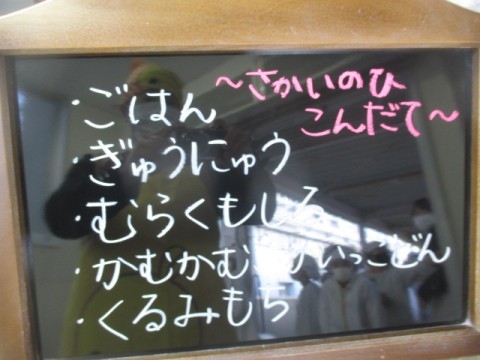 ～さかいのひ
こんだて～
・ごはん
・ぎゅうにゅう
・むらくもじる
・かむかむ いっこどん
・くるみもち